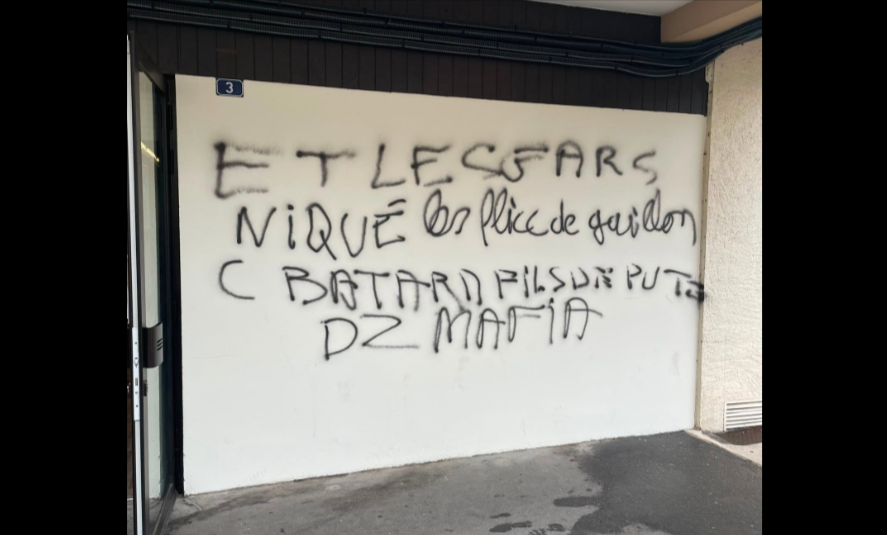 3
ET LES GARS
NiQUÉ les flice de gaillon
C BATARD FILS DE PUTE
DZ MAFiA